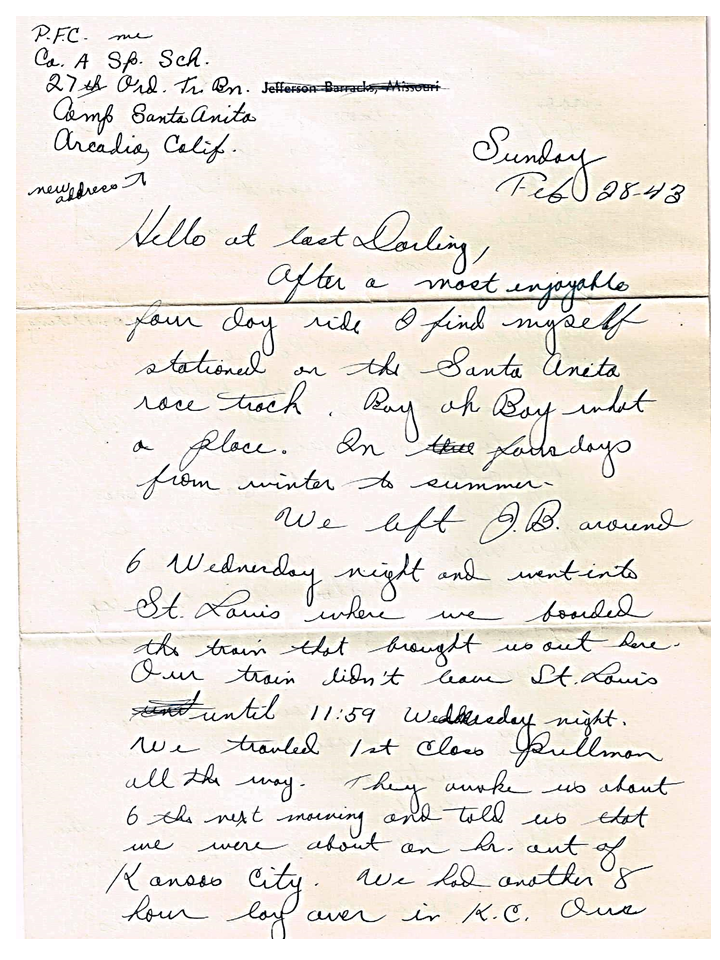 P.F.C. me
Co. A Sp. Sch.
27th Ord. Tr. Bn. Jefferson Barracks, Missouri
Camp Santa Anita
Arcadia, Calif.
new address ↑
Sunday
Feb 28-43
Hello at last Darling,
After a most enjoyable
four day ride I find myself
stationed on the Santa Anita
race track. Boy oh Boy what
a place. In four days
from winter to summer-
We left J.B. around
6 Wednesday night and went into
St. Louis where we boarded
the train that brought us out here.
Our train didn't leave St. Louis
until 11:59 Wednesday night.
We travled 1st Class Pullman
all the way. They awoke us about
6 the next morning and told us that
we were about an hr. out of
Kansas City. We had another 8
hour lay over in K.C. Our